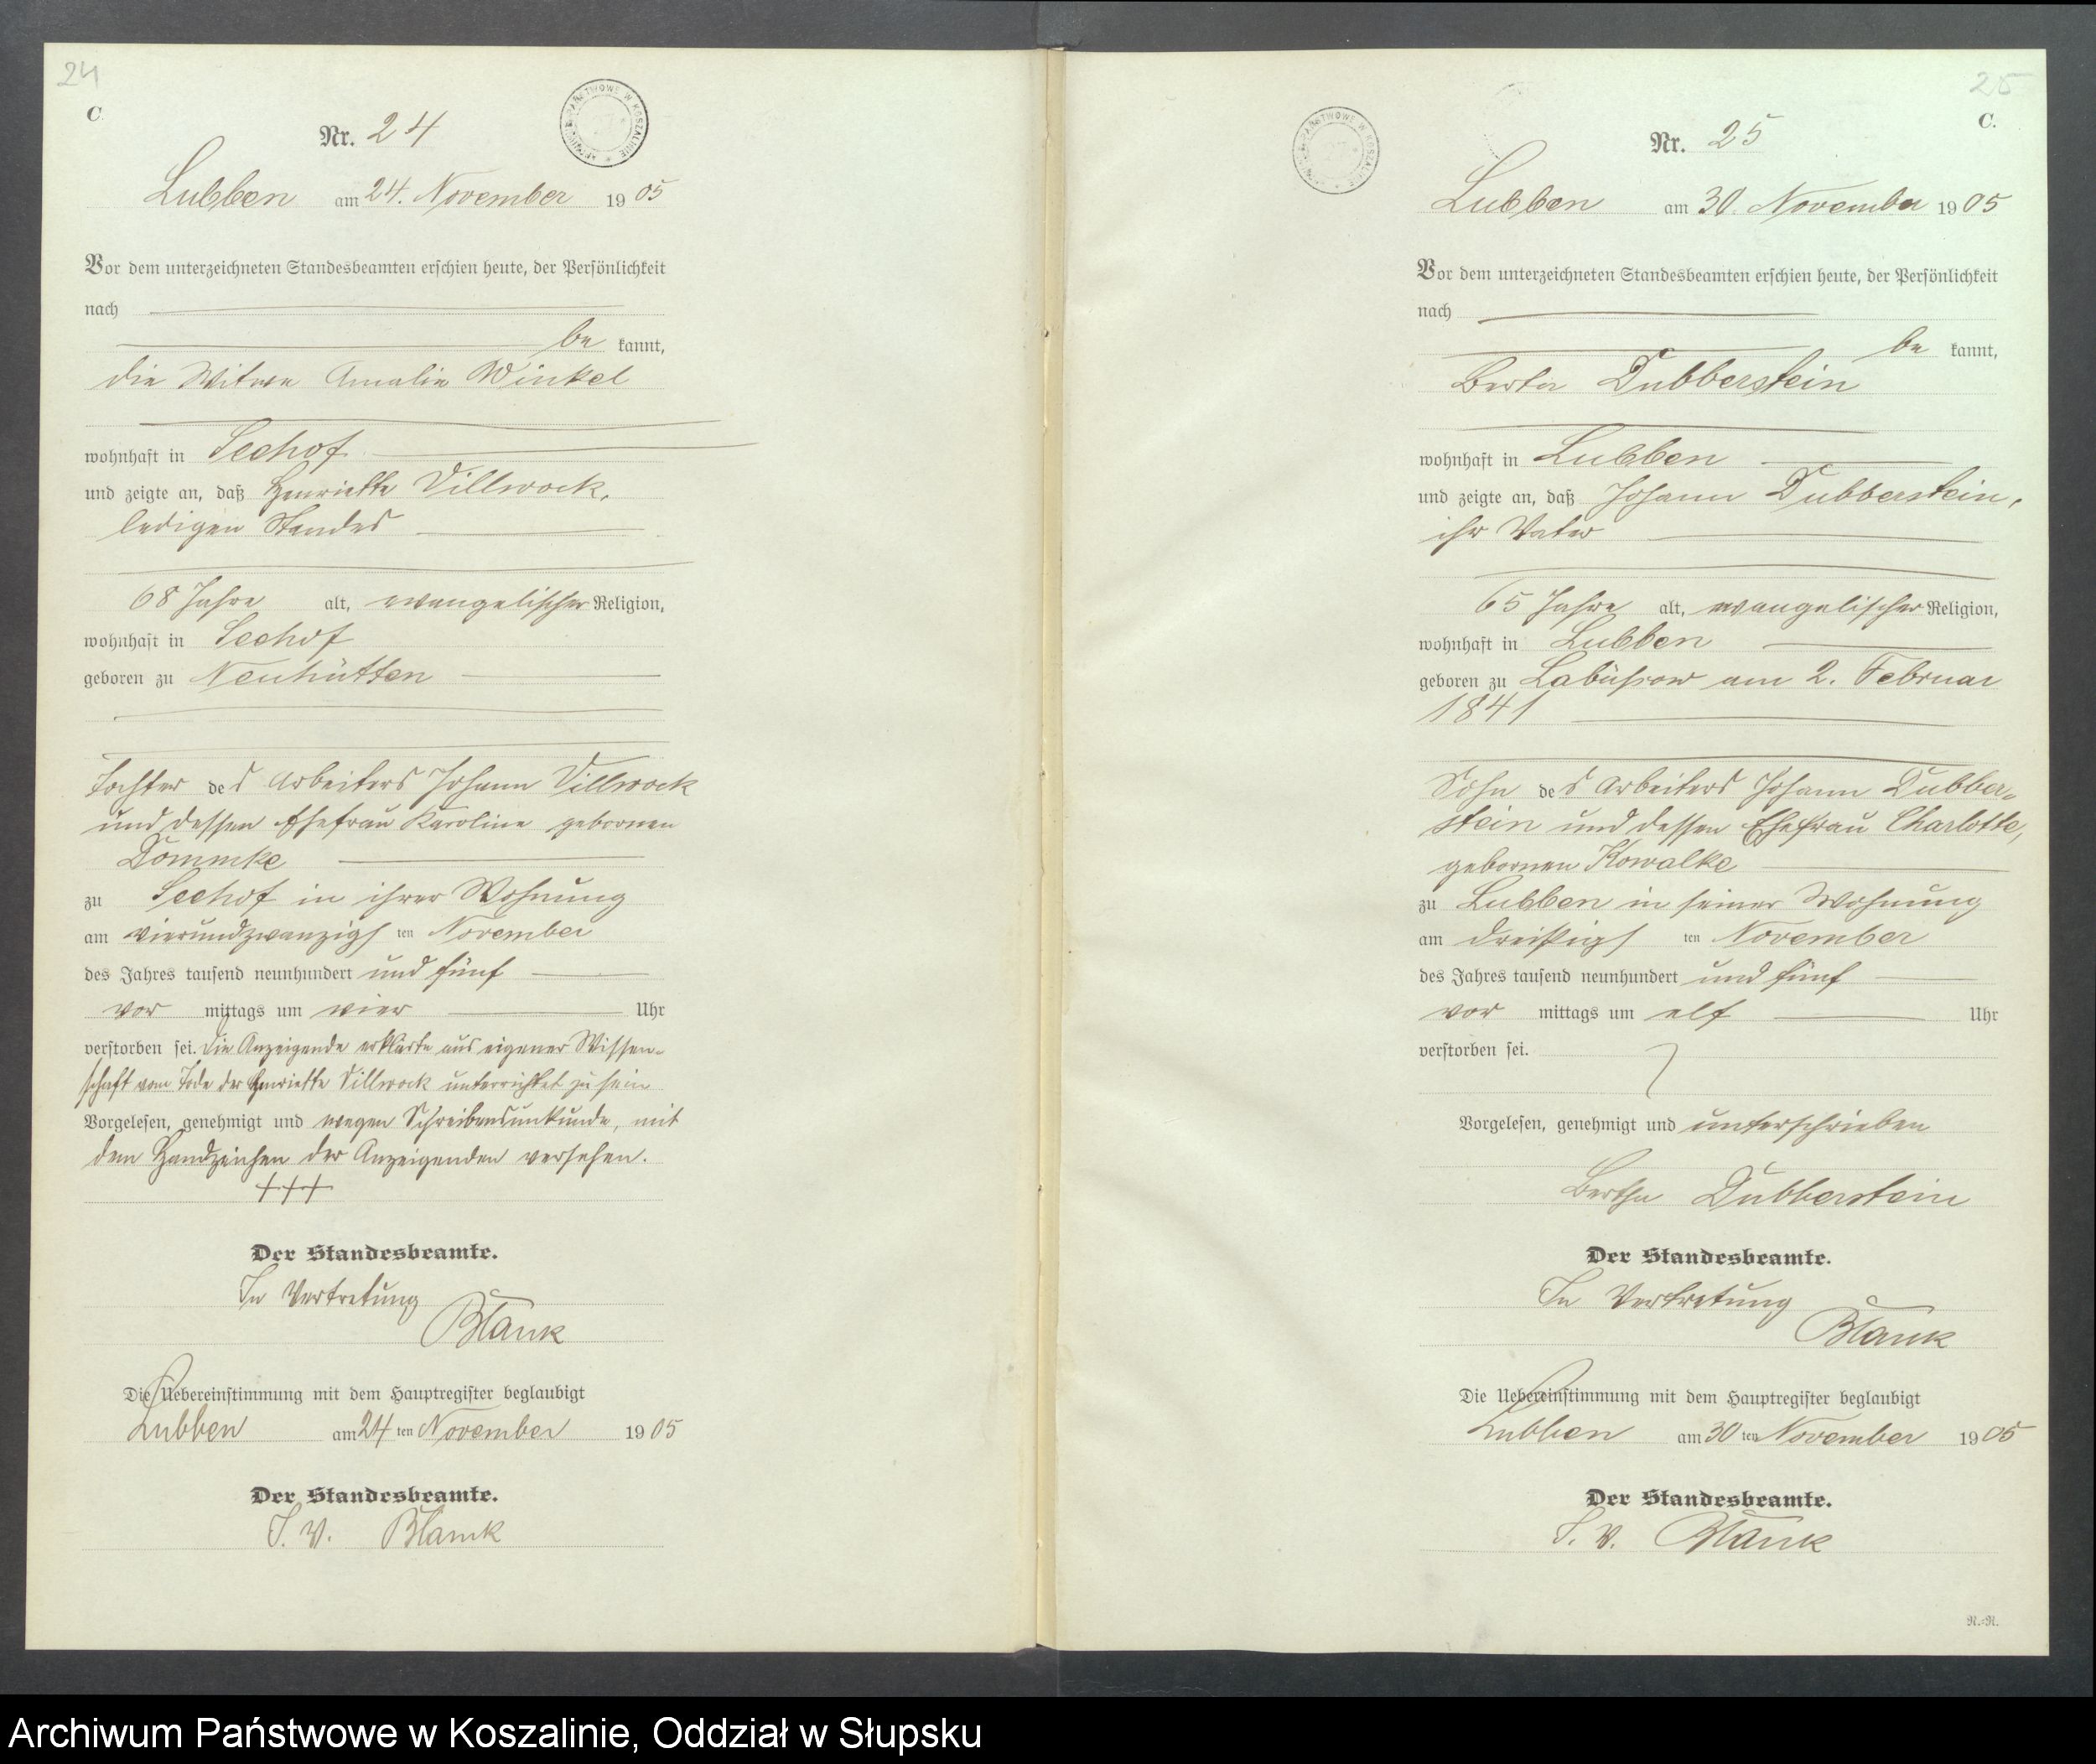 24
C.
Nr. 24
Lubben am 24. November 1905
Vor dem unterzeichneten Standesbeamten erschien heute, der Persönlichkeit
nach
be kannt,
die Witwe Amalie Winkel
wohnhaft in Seehof
und zeigte an, daß Henriette Villwock,
ledigen Standes
68 Jahre alt, evangelischer Religion,
wohnhaft in Seehof
geboren zu Neuhütten
Tochter des Arbeiters Johann Villwock
und dessen Ehefrau Karoline geborenen
Dömmke
zu Seehof in ihrer Wohnung
am vierundzwanzigsten November
des Jahres tausend neunhundert und fünf
vor mittags um vier Uhr
verstorben sei. Die Anzeigende erklärte aus eigener Wissen-
schaft vom Tode der Henriette Villwock unterrichtet zu sein
Vorgelesen, genehmigt und wegen Schreibensunkunde, mit
dem Handzeichen der Anzeigenden versehen.
+++
Der Standesbeamte.
In Vertretung
Blank
Die Uebereinstimmung mit dem Hauptregister beglaubigt
Lubben am 24ten November 1905
Der Standesbeamte.
I. V. Blank
ARCHIWUM PAŃSTWOWE W KOSZALINIE
25
C.
Nr. 25
Lubben am 30. November 1905
Vor dem unterzeichneten Standesbeamten erschien heute, der Persönlichkeit
nach
be kannt,
Berta Dubberstein
wohnhaft in Lubben
und zeigte an, daß Johann Dubberstein,
ihr Vater
65 Jahre alt, evangelischer Religion,
wohnhaft in Lubben
geboren zu Labüssow am 2. Februar
1841
Sohn des Arbeiters Johann Dubber-
stein und dessen Ehefrau Charlotte,
geborenen Kowalke
zu Lubben in seiner Wohnung
am dreißigsten November
des Jahres tausend neunhundert und fünf
vor mittags um elf Uhr
verstorben sei.
Vorgelesen, genehmigt und unterschrieben
Bertha Dubberstein
Der Standesbeamte.
In Vertretung
Blank
Die Uebereinstimmung mit dem Hauptregister beglaubigt
Lubben am 30ten November 1905
Der Standesbeamte.
I. V. Blank
R.=R.
ARCHIWUM PAŃSTWOWE W KOSZALINIE
Archiwum Państwowe w Koszalinie, Oddział w Słupsku